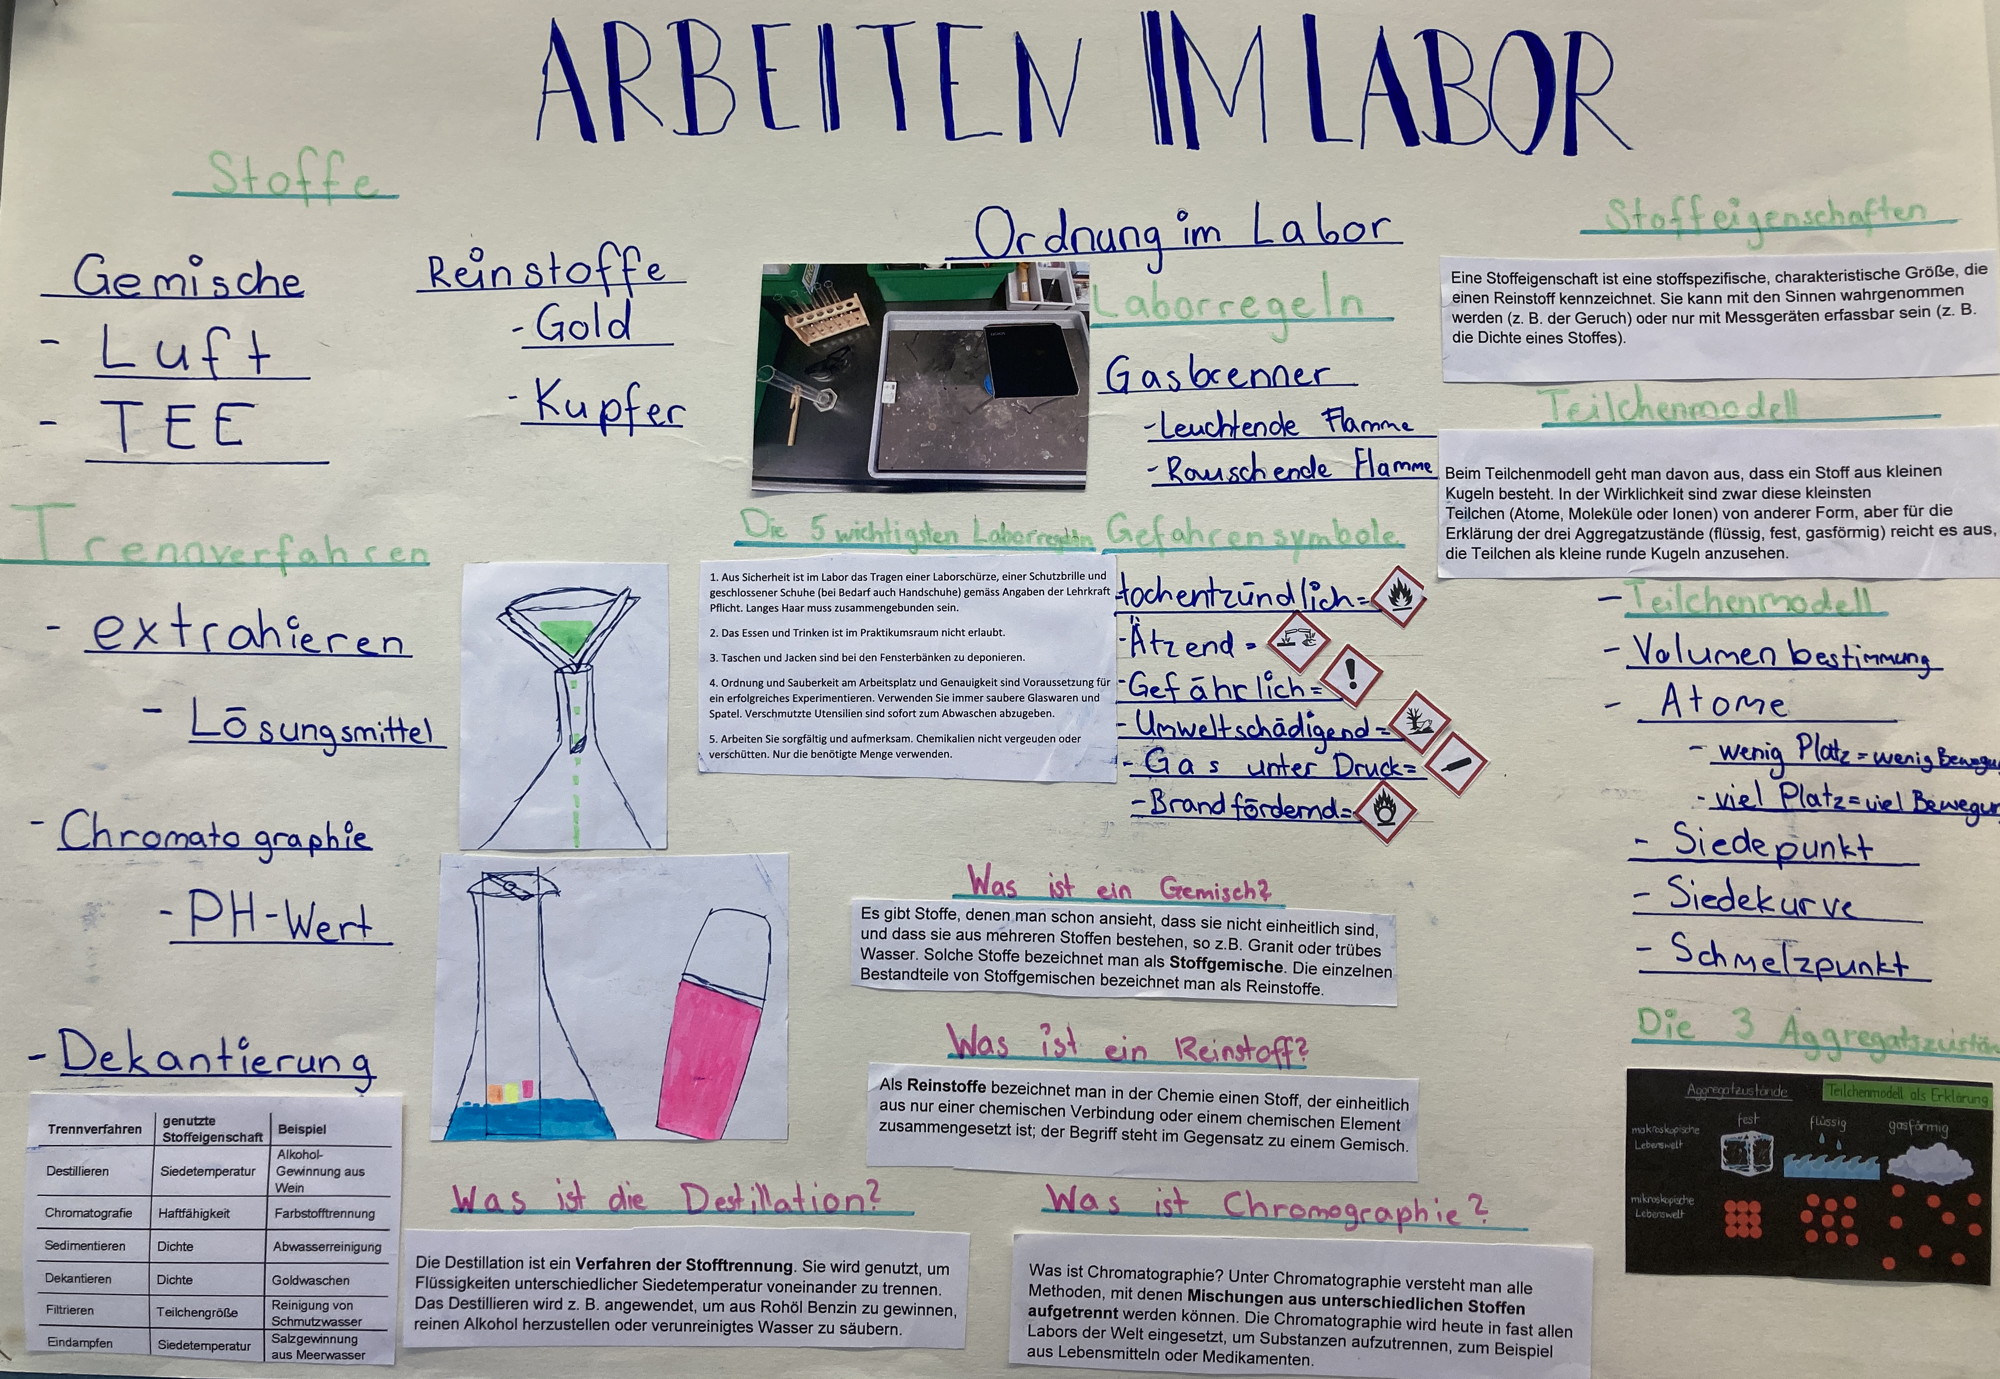 ARBEITEN IM LABOR
Stoffe
Gemische
- Luft
- TEE
Reinstoffe
- Gold
- Kupfer
Trennverfahren
- extrahieren
- Lösungsmittel
- Chromatographie
- PH-Wert
- Dekantierung
Trennverfahren | genutzte Stoffeigenschaft | Beispiel
Destillieren | Siedetemperatur | Alkohol-Gewinnung aus Wein
Chromatografie | Haftfähigkeit | Farbstofftrennung
Sedimentieren | Dichte | Abwasserreinigung
Dekantieren | Dichte | Goldwaschen
Filtrieren | Teilchengröße | Reinigung von Schmutzwasser
Eindampfen | Siedetemperatur | Salzgewinnung aus Meerwasser
Ordnung im Labor
Laborregeln
Gasbrenner
- Leuchtende Flamme
- Rauschende Flamme
Die 5 wichtigsten Laborregeln
1. Aus Sicherheit ist im Labor das Tragen einer Laborschürze, einer Schutzbrille und
geschlossener Schuhe (bei Bedarf auch Handschuhe) gemäss Angaben der Lehrkraft
Pflicht. Langes Haar muss zusammengebunden sein.
2. Das Essen und Trinken ist im Praktikumsraum nicht erlaubt.
3. Taschen und Jacken sind bei den Fensterbänken zu deponieren.
4. Ordnung und Sauberkeit am Arbeitsplatz und Genauigkeit sind Voraussetzung für
ein erfolgreiches Experimentieren. Verwenden Sie immer saubere Glaswaren und
Spatel. Verschmutzte Utensilien sind sofort zum Abwaschen abzugeben.
5. Arbeiten Sie sorgfältig und aufmerksam. Chemikalien nicht vergeuden oder
verschütten. Nur die benötigte Menge verwenden.
Gefahrensymbole
Hochentzündlich=
- Ätzend =
- Gefährlich=
- Umweltschädigend=
- Gas unter Druck=
- Brandfördernd=
Was ist ein Gemisch?
Es gibt Stoffe, denen man schon ansieht, dass sie nicht einheitlich sind,
und dass sie aus mehreren Stoffen bestehen, so z.B. Granit oder trübes
Wasser. Solche Stoffe bezeichnet man als Stoffgemische. Die einzelnen
Bestandteile von Stoffgemischen bezeichnet man als Reinstoffe.
Was ist ein Reinstoff?
Als Reinstoffe bezeichnet man in der Chemie einen Stoff, der einheitlich
aus nur einer chemischen Verbindung oder einem chemischen Element
zusammengesetzt ist; der Begriff steht im Gegensatz zu einem Gemisch.
Was ist die Destillation?
Die Destillation ist ein Verfahren der Stofftrennung. Sie wird genutzt, um
Flüssigkeiten unterschiedlicher Siedetemperatur voneinander zu trennen.
Das Destillieren wird z. B. angewendet, um aus Rohöl Benzin zu gewinnen,
reinen Alkohol herzustellen oder verunreinigtes Wasser zu säubern.
Was ist Chromographie?
Was ist Chromatographie? Unter Chromatographie versteht man alle
Methoden, mit denen Mischungen aus unterschiedlichen Stoffen
aufgetrennt werden können. Die Chromatographie wird heute in fast allen
Labors der Welt eingesetzt, um Substanzen aufzutrennen, zum Beispiel
aus Lebensmitteln oder Medikamenten.
Stoffeigenschaften
Eine Stoffeigenschaft ist eine stoffspezifische, charakteristische Größe, die
einen Reinstoff kennzeichnet. Sie kann mit den Sinnen wahrgenommen
werden (z. B. der Geruch) oder nur mit Messgeräten erfassbar sein (z. B.
die Dichte eines Stoffes).
Teilchenmodell
Beim Teilchenmodell geht man davon aus, dass ein Stoff aus kleinen
Kugeln besteht. In der Wirklichkeit sind zwar diese kleinsten
Teilchen (Atome, Moleküle oder Ionen) von anderer Form, aber für die
Erklärung der drei Aggregatzustände (flüssig, fest, gasförmig) reicht es aus,
die Teilchen als kleine runde Kugeln anzusehen.
- Teilchenmodell
- Volumenbestimmung
- Atome
- wenig Platz = wenig Bewegu
- viel Platz = viel Bewegun
- Siedepunkt
- Siedekurve
- Schmelzpunkt
Die 3 Aggregatszustän
Aggregatzustände
Teilchenmodell als Erklärung
makroskopische Lebenswelt
fest
flüssig
gasförmig
mikroskopische Lebenswelt